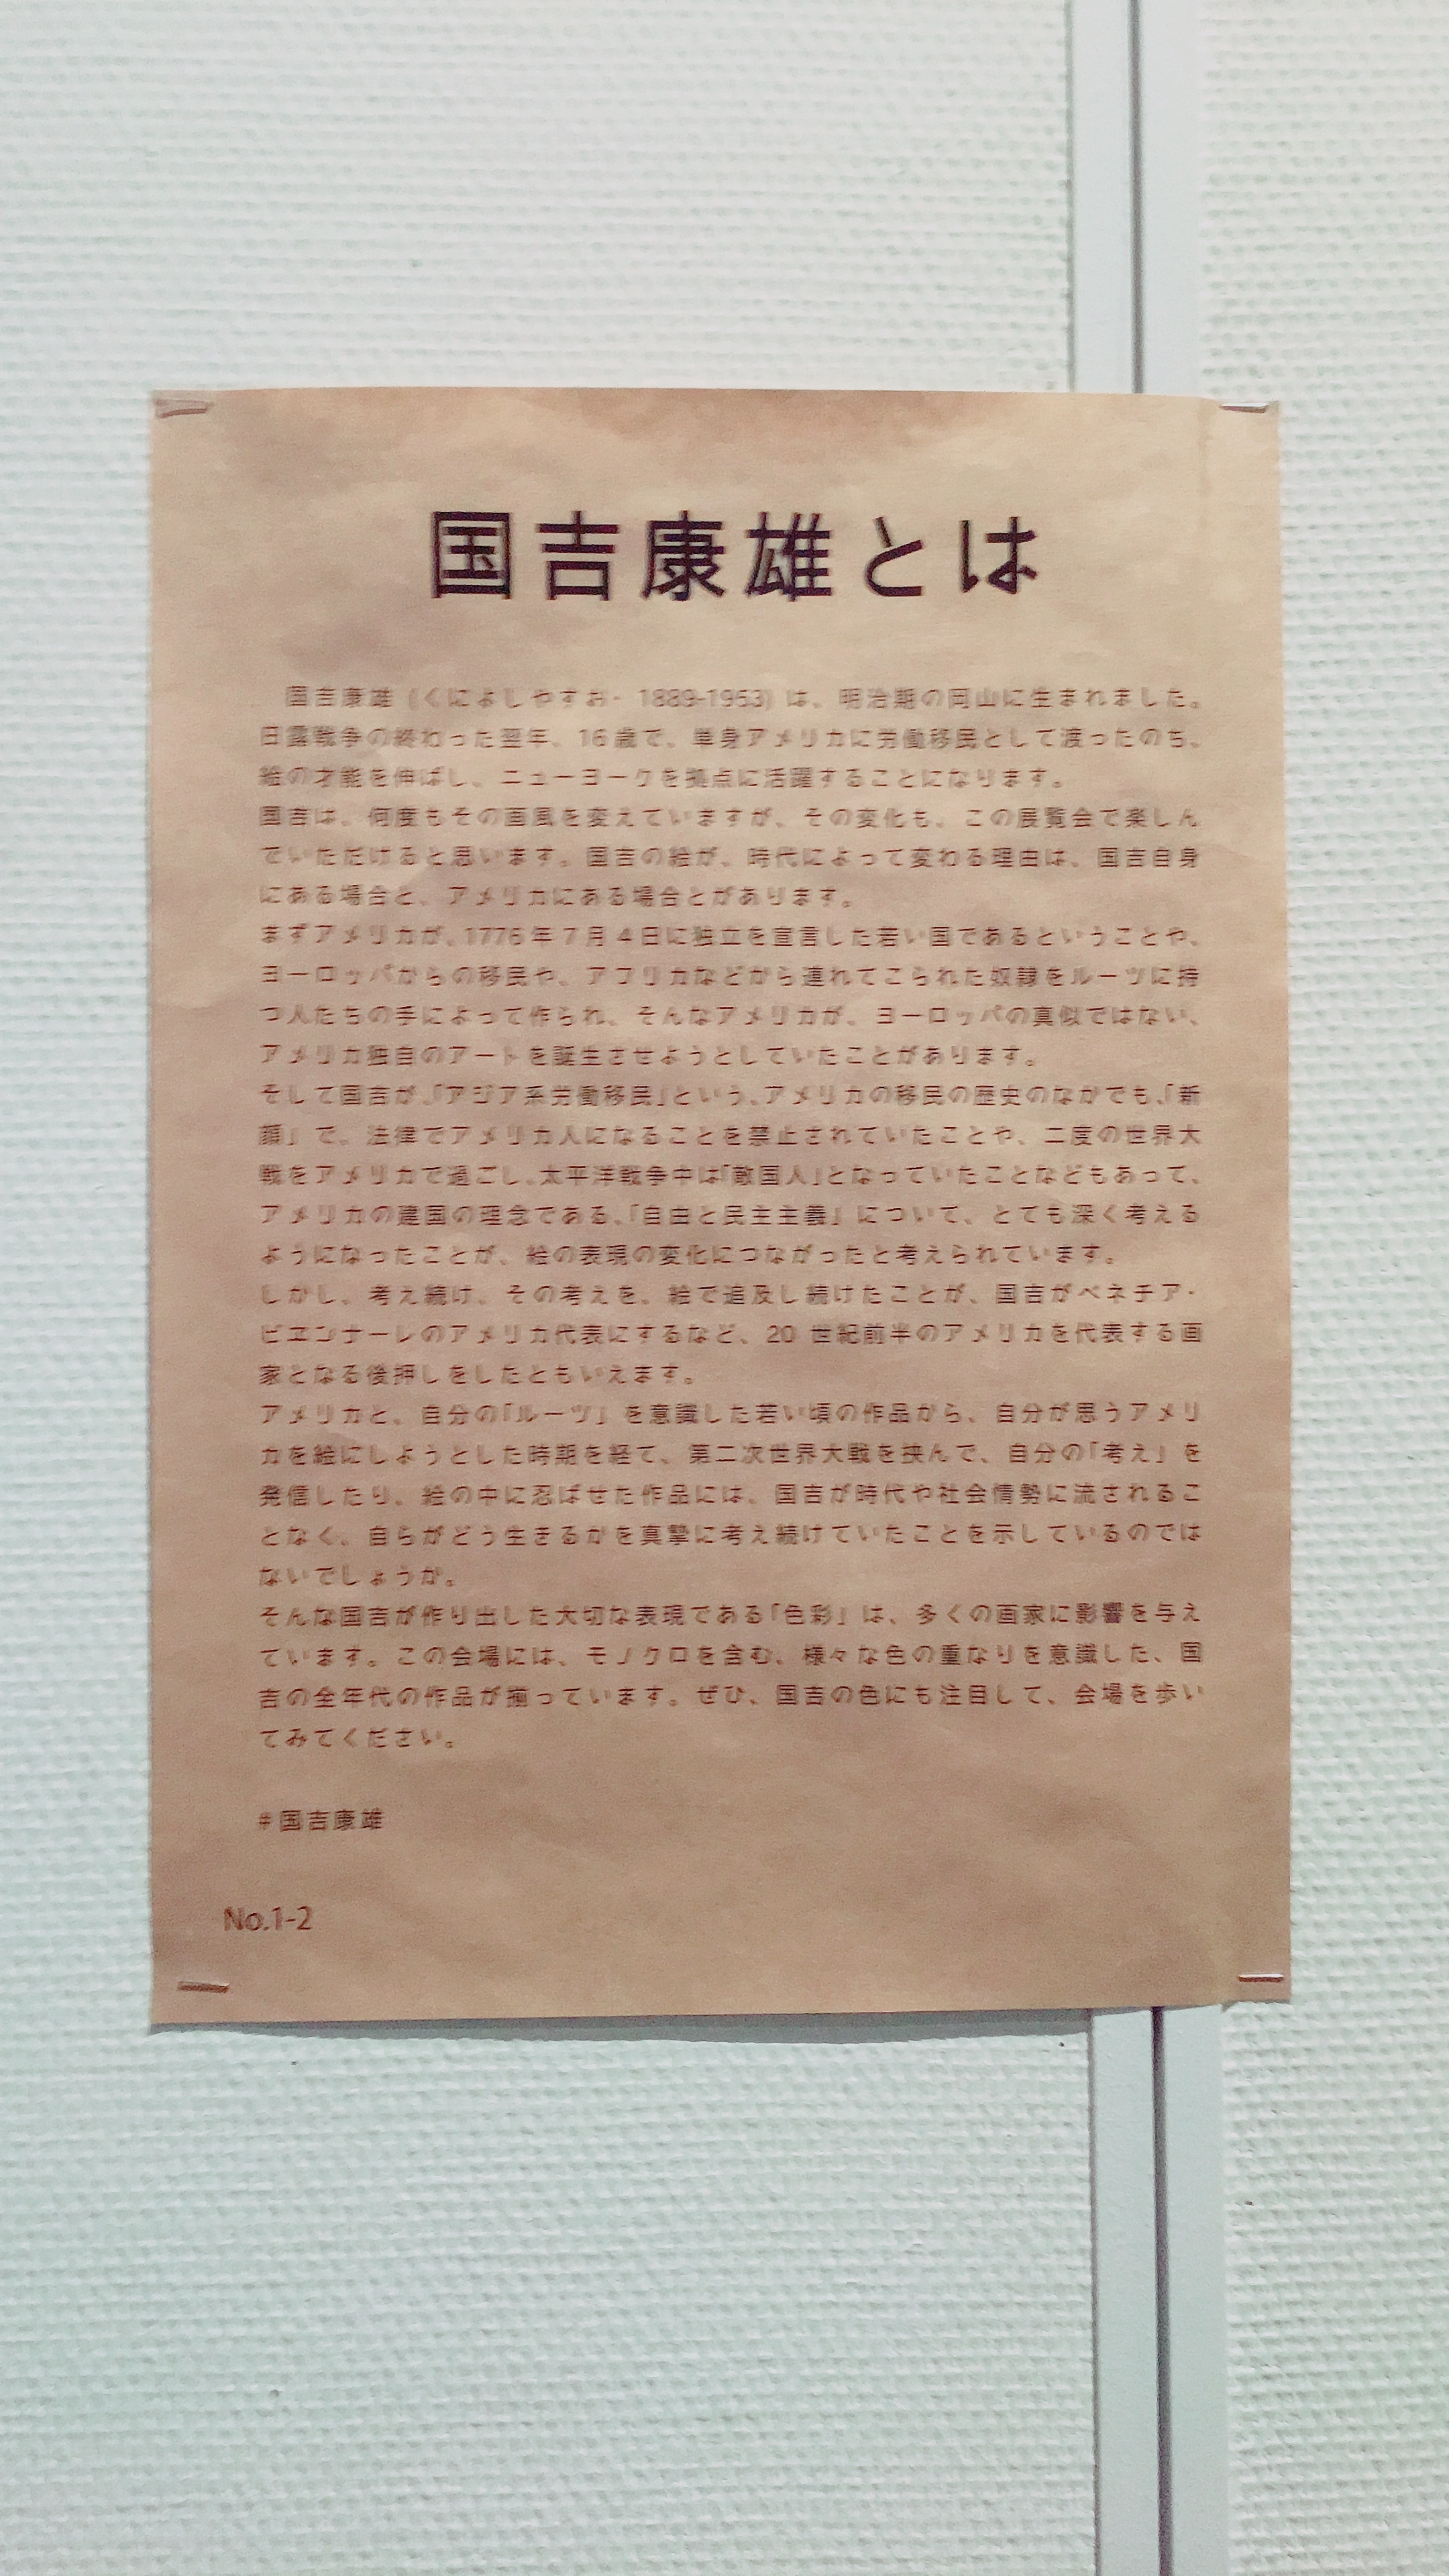 国吉康雄とは
国吉康雄 (くによしやすお・1889-1953) は、明治期の岡山に生まれました。
日露戦争の終わった翌年、16歳で、単身アメリカに労働移民として渡ったのち、
絵の才能を伸ばし、ニューヨークを拠点に活躍することになります。
国吉は、何度もその画風を変えていますが、その変化も、この展覧会で楽しん
でいただけると思います。国吉の絵が、時代によって変わる理由は、国吉自身
にある場合と、アメリカにある場合とがあります。
まずアメリカが、1776年7月4日に独立を宣言した若い国であるということや、
ヨーロッパからの移民や、アフリカなどから連れてこられた奴隷をルーツに持
つ人たちの手によって作られ、そんなアメリカが、ヨーロッパの真似ではない、
アメリカ独自のアートを誕生させようとしていたことがあります。
そして国吉が、「アジア系労働移民」という、アメリカの移民の歴史のなかでも、「新
顔」で、法律でアメリカ人になることを禁止されていたことや、二度の世界大
戦をアメリカで過ごし、太平洋戦争中は「敵国人」となっていたことなどもあって、
アメリカの建国の理念である、「自由と民主主義」について、とても深く考える
ようになったことが、絵の表現の変化につながったと考えられています。
しかし、考え続け、その考えを、絵で追及し続けたことが、国吉がベネチア・
ビエンナーレのアメリカ代表にするなど、20 世紀前半のアメリカを代表する画
家となる後押しをしたともいえます。
アメリカと、自分の「ルーツ」を意識した若い頃の作品から、自分が思うアメリ
カを絵にしようとした時期を経て、第二次世界大戦を挟んで、自分の「考え」を
発信したり、絵の中に忍ばせた作品には、国吉が時代や社会情勢に流されるこ
となく、自らがどう生きるかを真摯に考え続けていたことを示しているのでは
ないでしょうか。
そんな国吉が作り出した大切な表現である「色彩」は、多くの画家に影響を与え
ています。この会場には、モノクロを含む、様々な色の重なりを意識した、国
吉の全年代の作品が揃っています。ぜひ、国吉の色にも注目して、会場を歩い
てみてください。
#国吉康雄
No.1-2